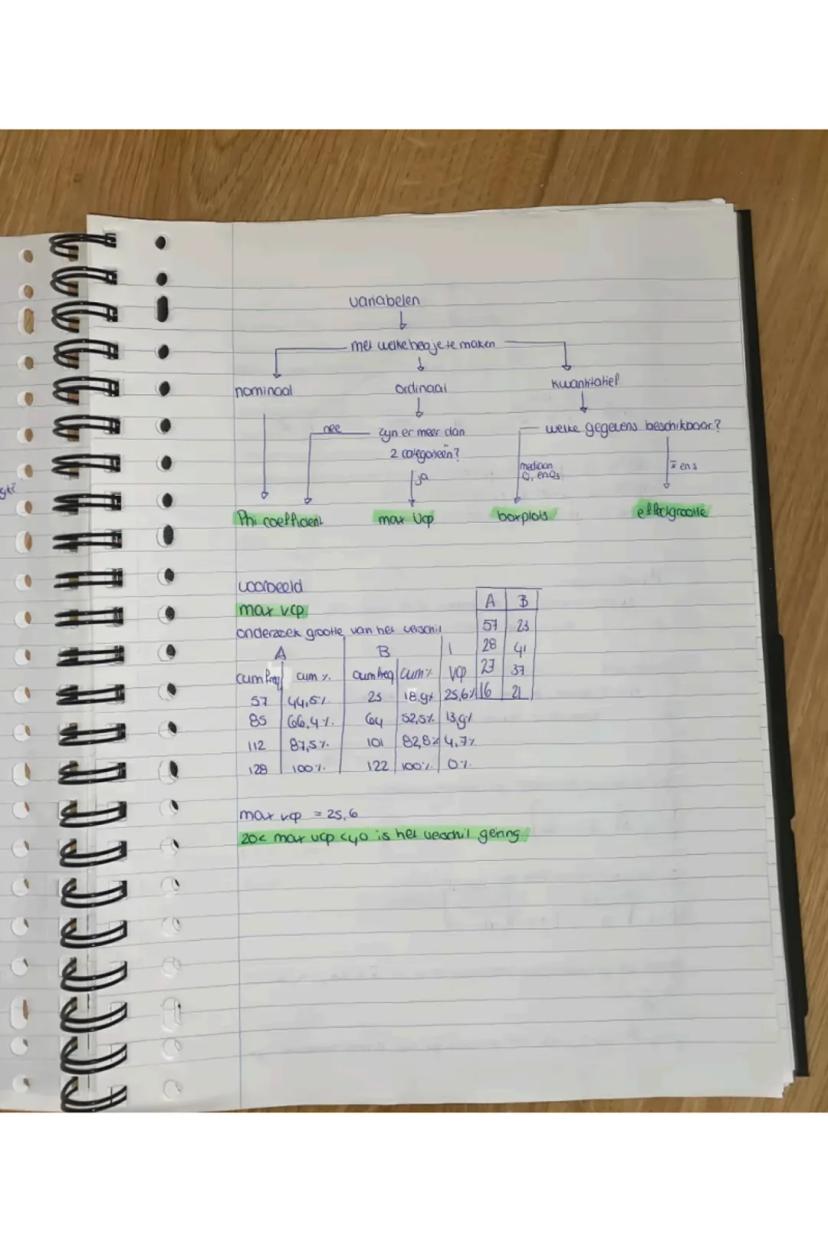 variabelen
met welke heb je te maken
nominaal ordinaal kwantitatief
nee zijn er meer dan welke gegevens beschikbaar?
2 categorieën? mediaan x̄ en s
ja Q, en Q3
Phi coefficient max Vcp boxplots effectgrootte
voorbeeld
max vcp A B
onderzoek grootte van het verschil 57 23
A B | 28 41
cum freq cum % cum freq cum % Vcp 27 37
57 44,5% 23 18,9% 25,6% 16 21
85 66,4% 64 52,5% 13,9%
112 87,5% 101 82,8% 4,7%
128 100% 122 100% 0%
max vcp = 25,6
20< max vcp <40 is het verschil gering